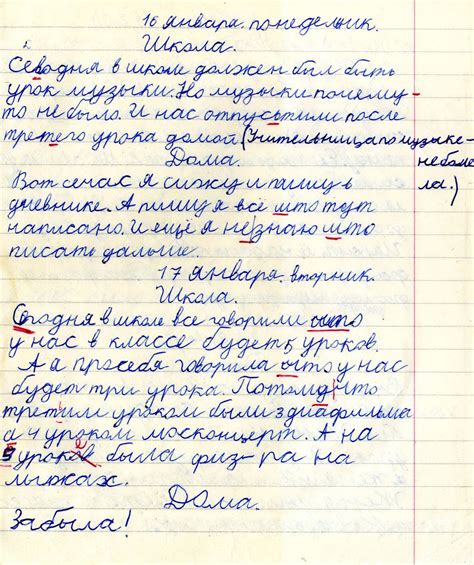 16 января. понедельник.
Школа.
Севодня в школе должен был быть
урок музыки. Но музыки почему-
то не было. И нас отпустьтили после
третего урока домой (Учительница по музыке-
Дома. не боле
Вот сечас я сижу и пишу в ла.)
дневнике. А пишу я всё што тут
написано. И ещё я незнаю што
писать дальше.
17 января. вторник.
Школа.
Сегодня в школе все говорили што
у нас в классе будет 5 уроков.
А я просебя говорила што у нас
будет три урока. Потому что
третиим уроком были 3 диафильма
а 4 уроком москонцерт. А на
5 уроке была физ-ра на
лыжах.
Дома.
Забыла!